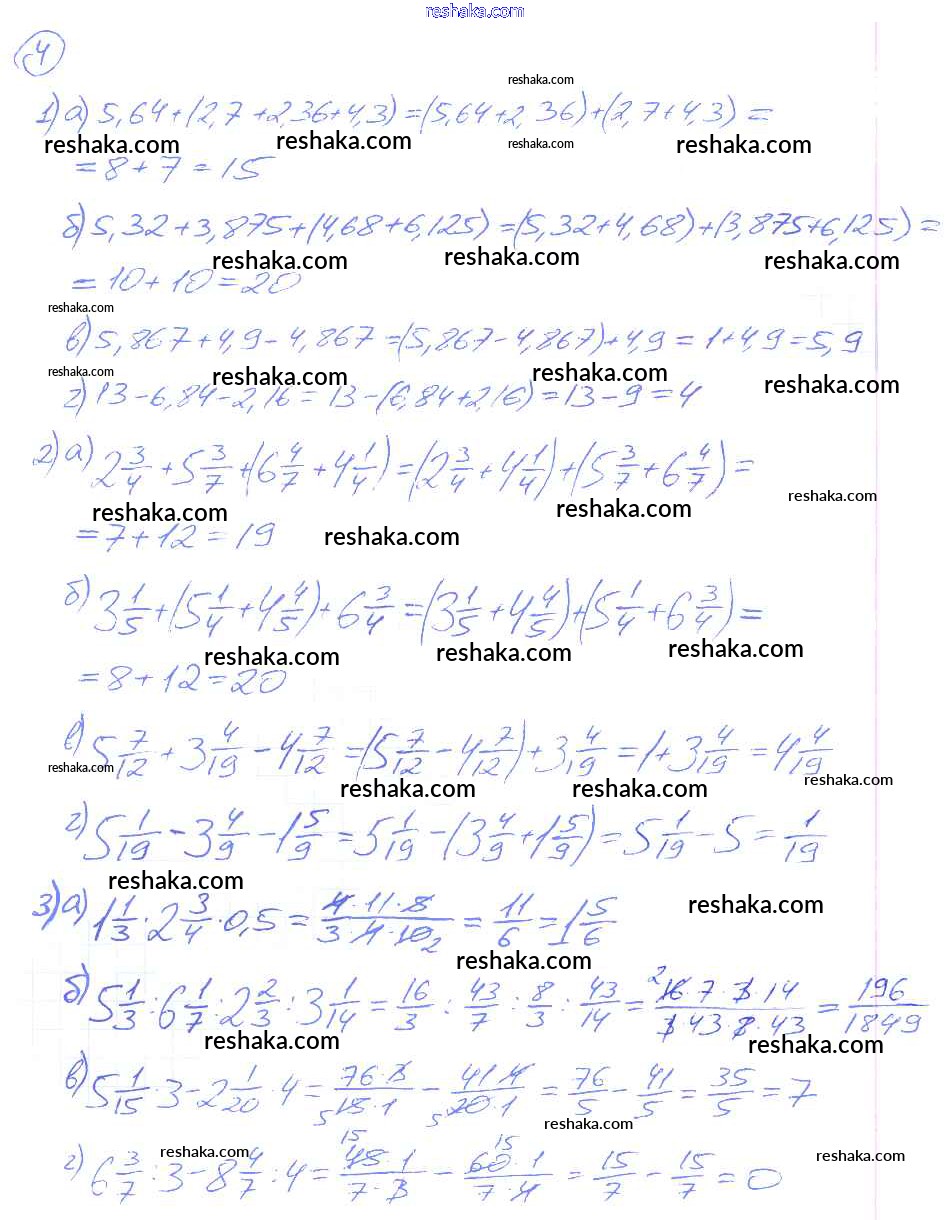 reshaka.com
4
reshaka.com
1) а) 5,64+(2,7+2,36+4,3)=(5,64+2,36)+(2,7+4,3)=
reshaka.com reshaka.com reshaka.com reshaka.com
=8+7=15
б) 5,32+3,875+(4,68+6,125)=(5,32+4,68)+(3,875+6,125)=
reshaka.com reshaka.com reshaka.com
=10+10=20
reshaka.com
в) 5,867+4,9-4,867=(5,867-4,867)+4,9=1+4,9=5,9
reshaka.com reshaka.com reshaka.com reshaka.com
г) 13-6,84-2,16=13-(6,84+2,16)=13-9=4
2) а) 2 3/4 + 5 3/7 + (6 4/7 + 4 1/4) = (2 3/4 + 4 1/4) + (5 3/7 + 6 4/7) =
reshaka.com reshaka.com reshaka.com
=7+12=19
reshaka.com
б) 3 1/5 + (5 1/4 + 4 4/5) + 6 3/4 = (3 1/5 + 4 4/5) + (5 1/4 + 6 3/4) =
reshaka.com reshaka.com reshaka.com
=8+12=20
в) 5 7/12 + 3 4/19 - 4 7/12 = (5 7/12 - 4 7/12) + 3 4/19 = 1 + 3 4/19 = 4 4/19
reshaka.com reshaka.com reshaka.com reshaka.com
г) 5 1/19 - 3 4/9 - 1 5/9 = 5 1/19 - (3 4/9 + 1 5/9) = 5 1/19 - 5 = 1/19
reshaka.com
3) а) 1 1/3 · 2 3/4 · 0,5 = = 11/6 = 1 5/6
reshaka.com
reshaka.com
б) 5 1/3 : 6 1/7 : 2 2/3 : 3 1/14 = 16/3 : 43/7 : 8/3 : 43/14 = 2 16·7·3·14/3·43·8·43 = 196/1849
reshaka.com reshaka.com
в) 5 1/15 · 3 - 2 1/20 · 4 = 76·3/5 15·1 - 41·4/5 20·1 = 76/5 - 41/5 = 35/5 = 7
reshaka.com
г) 6 3/7 : 3 - 8 4/7 : 4 = 15 45·1/7·3 - 15 60·1/7·4 = 15/7 - 15/7 = 0
reshaka.com reshaka.com